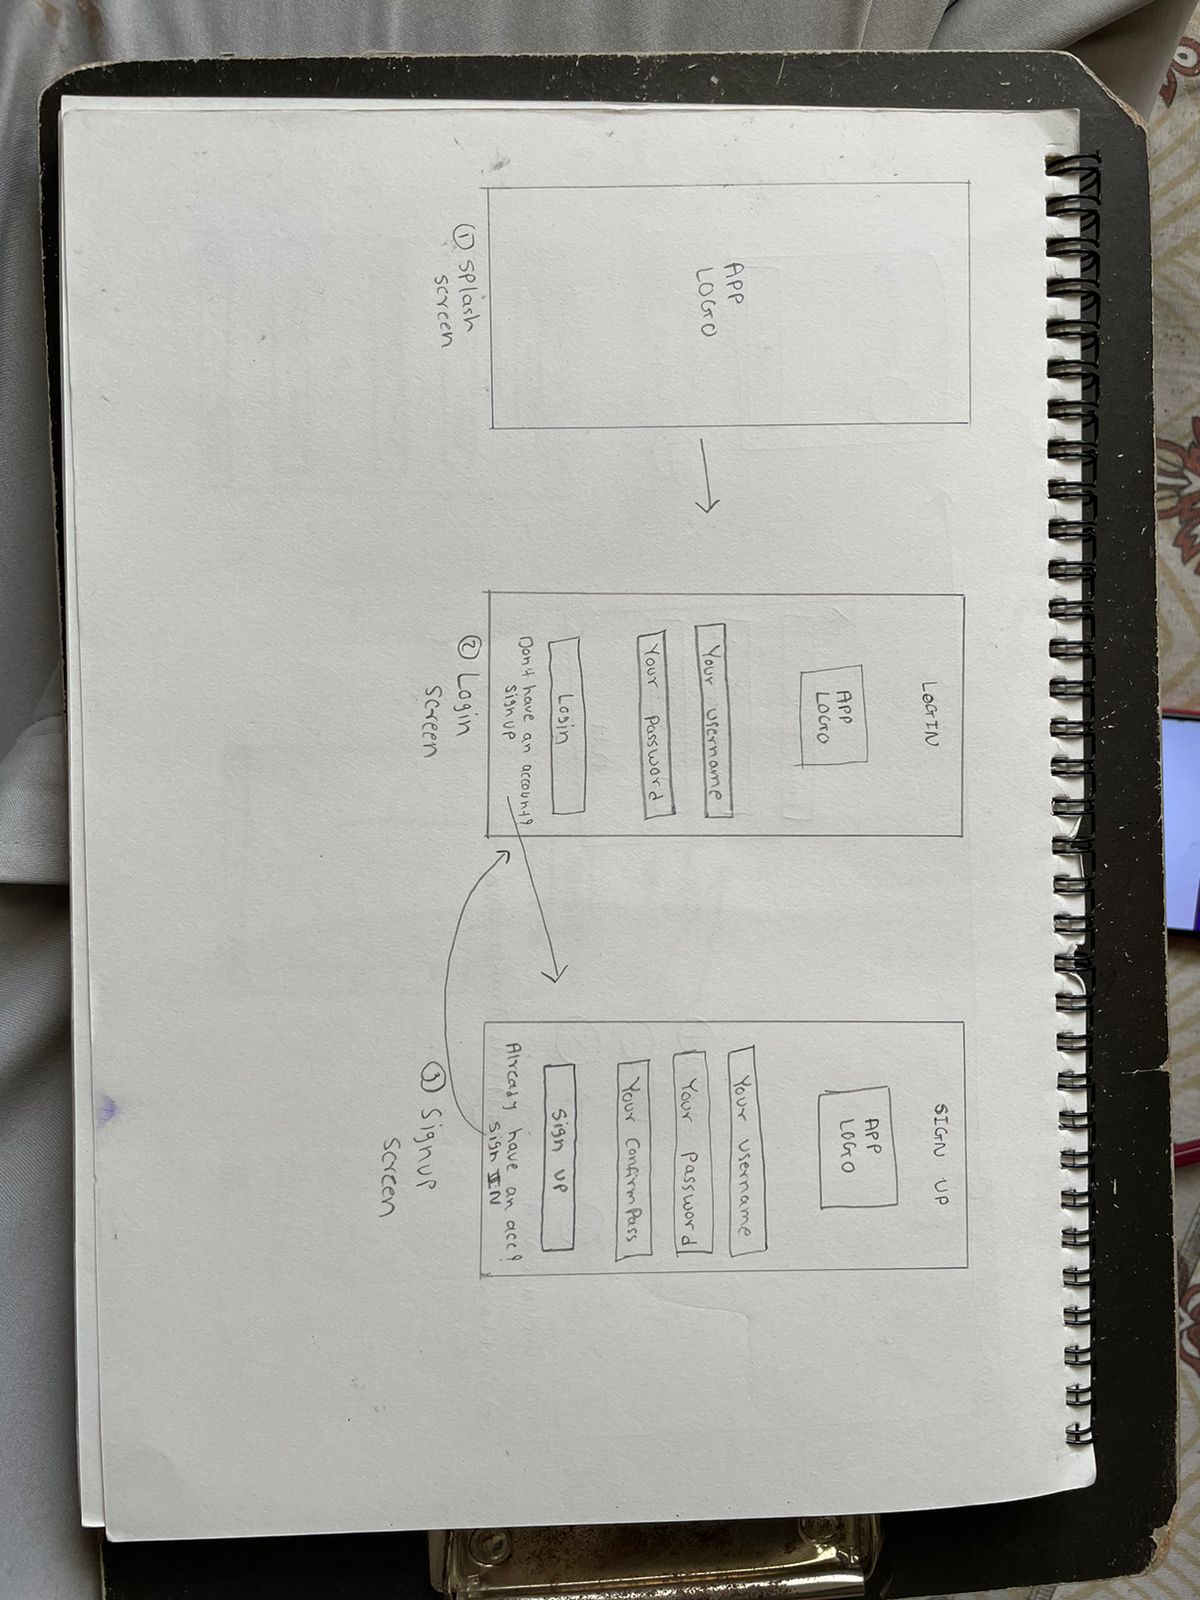 APP
LOGO
① Splash
screen
LOGIN
APP
LOGO
Your username
Your password
Login
Don't have an account?
signup
② Login
screen
SIGN UP
APP
LOGO
Your username
Your password
Your confirmpass
Sign UP
Already have an acc?
Sign IN
③ Signup
screen